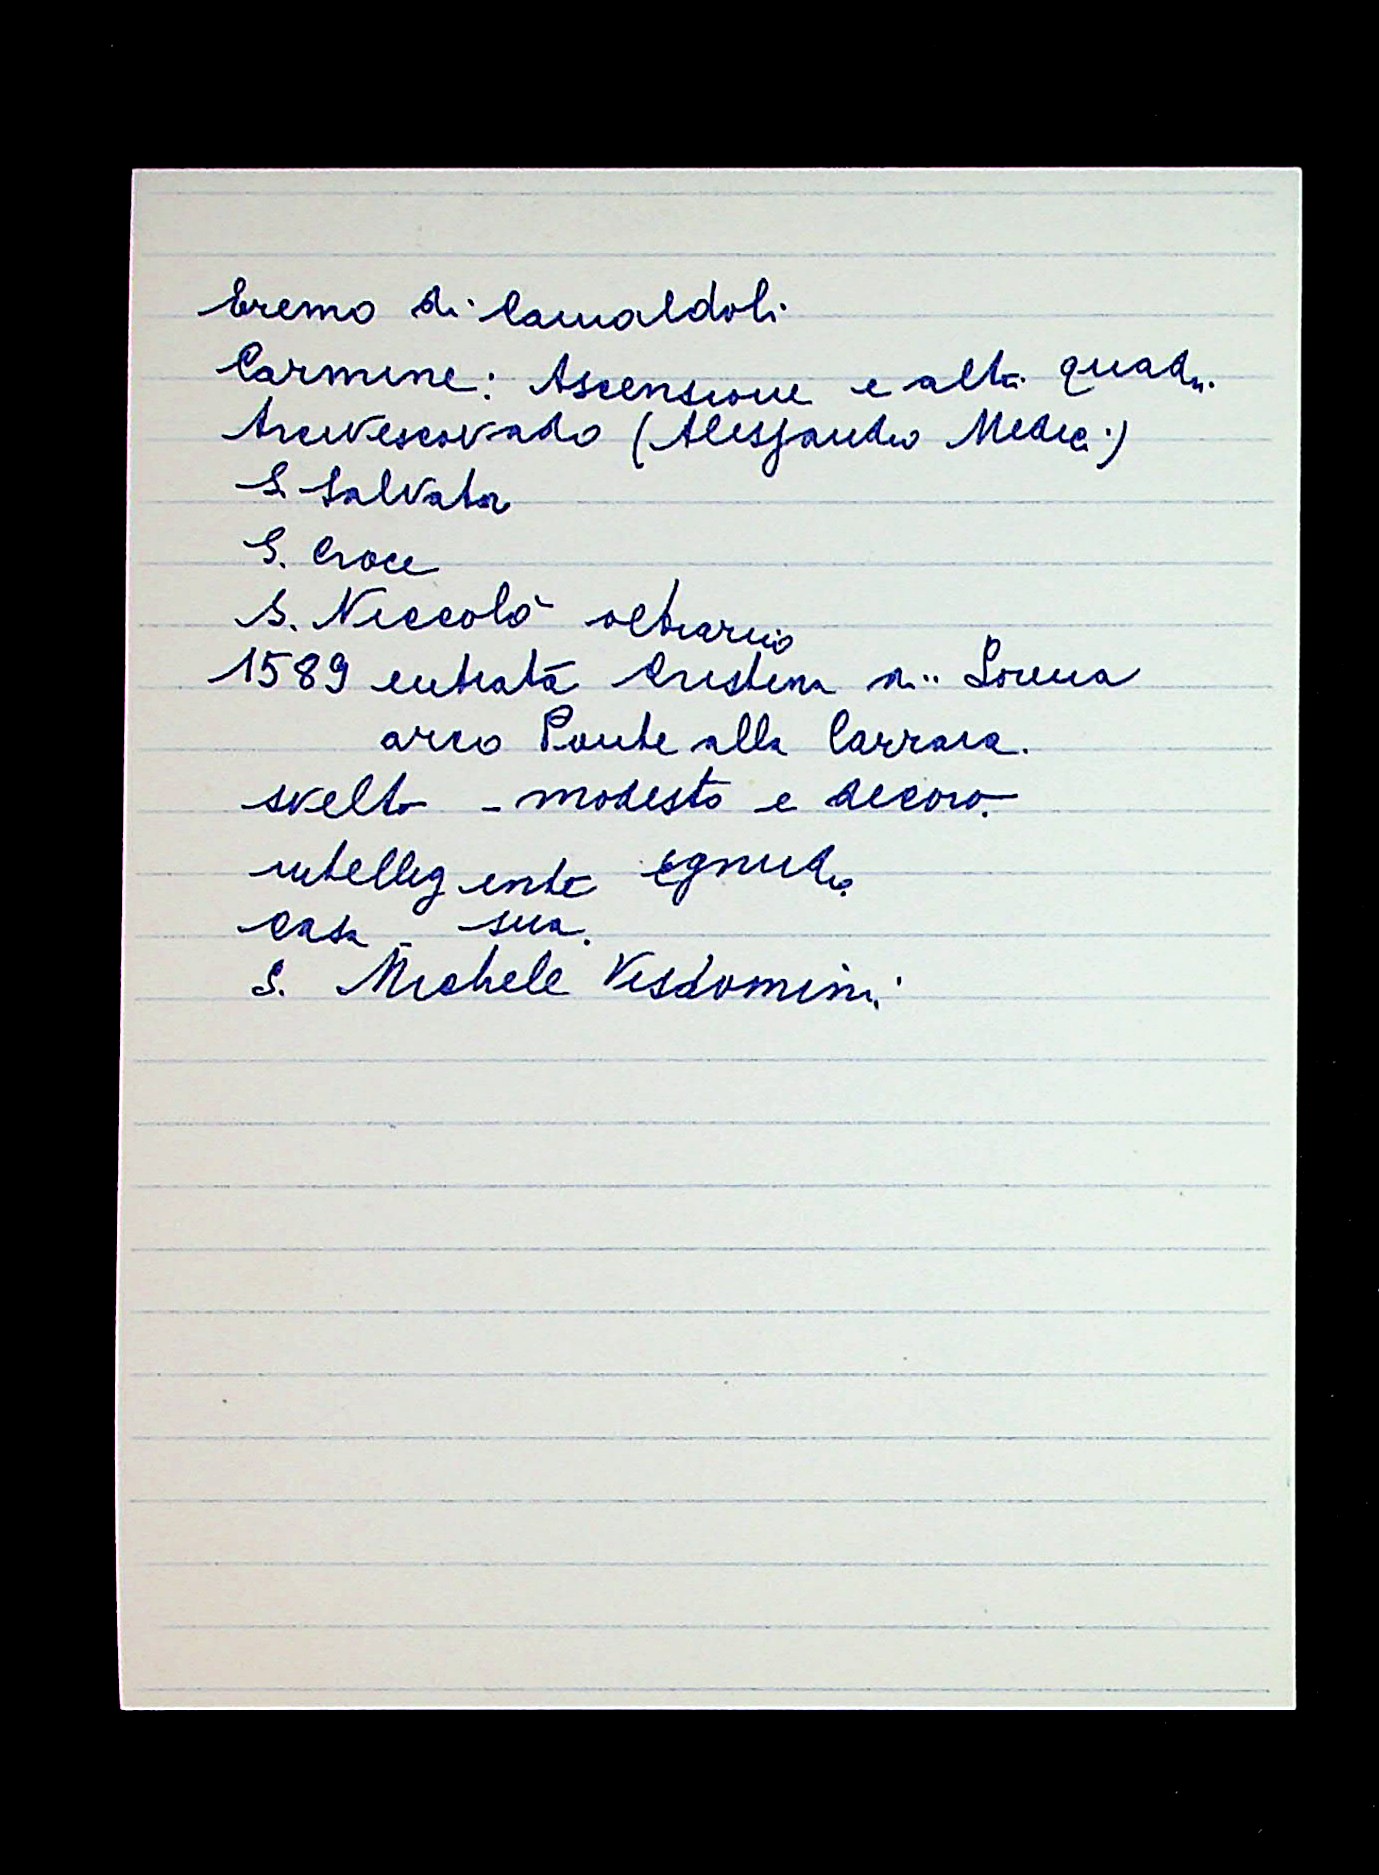 Eremo di Camaldoli
Carmine: Ascensione e altri quadri.
Arcivescovado (Alessandro Medici)
S. Salvator
S. Croce
S. Niccolò oltrarno
1589 entrata Cristina di Lorena
arco Ponte alla Carraia.
svelto - modesto e decoro.
intelligente
casa - sua.
S. Michele Visdomini